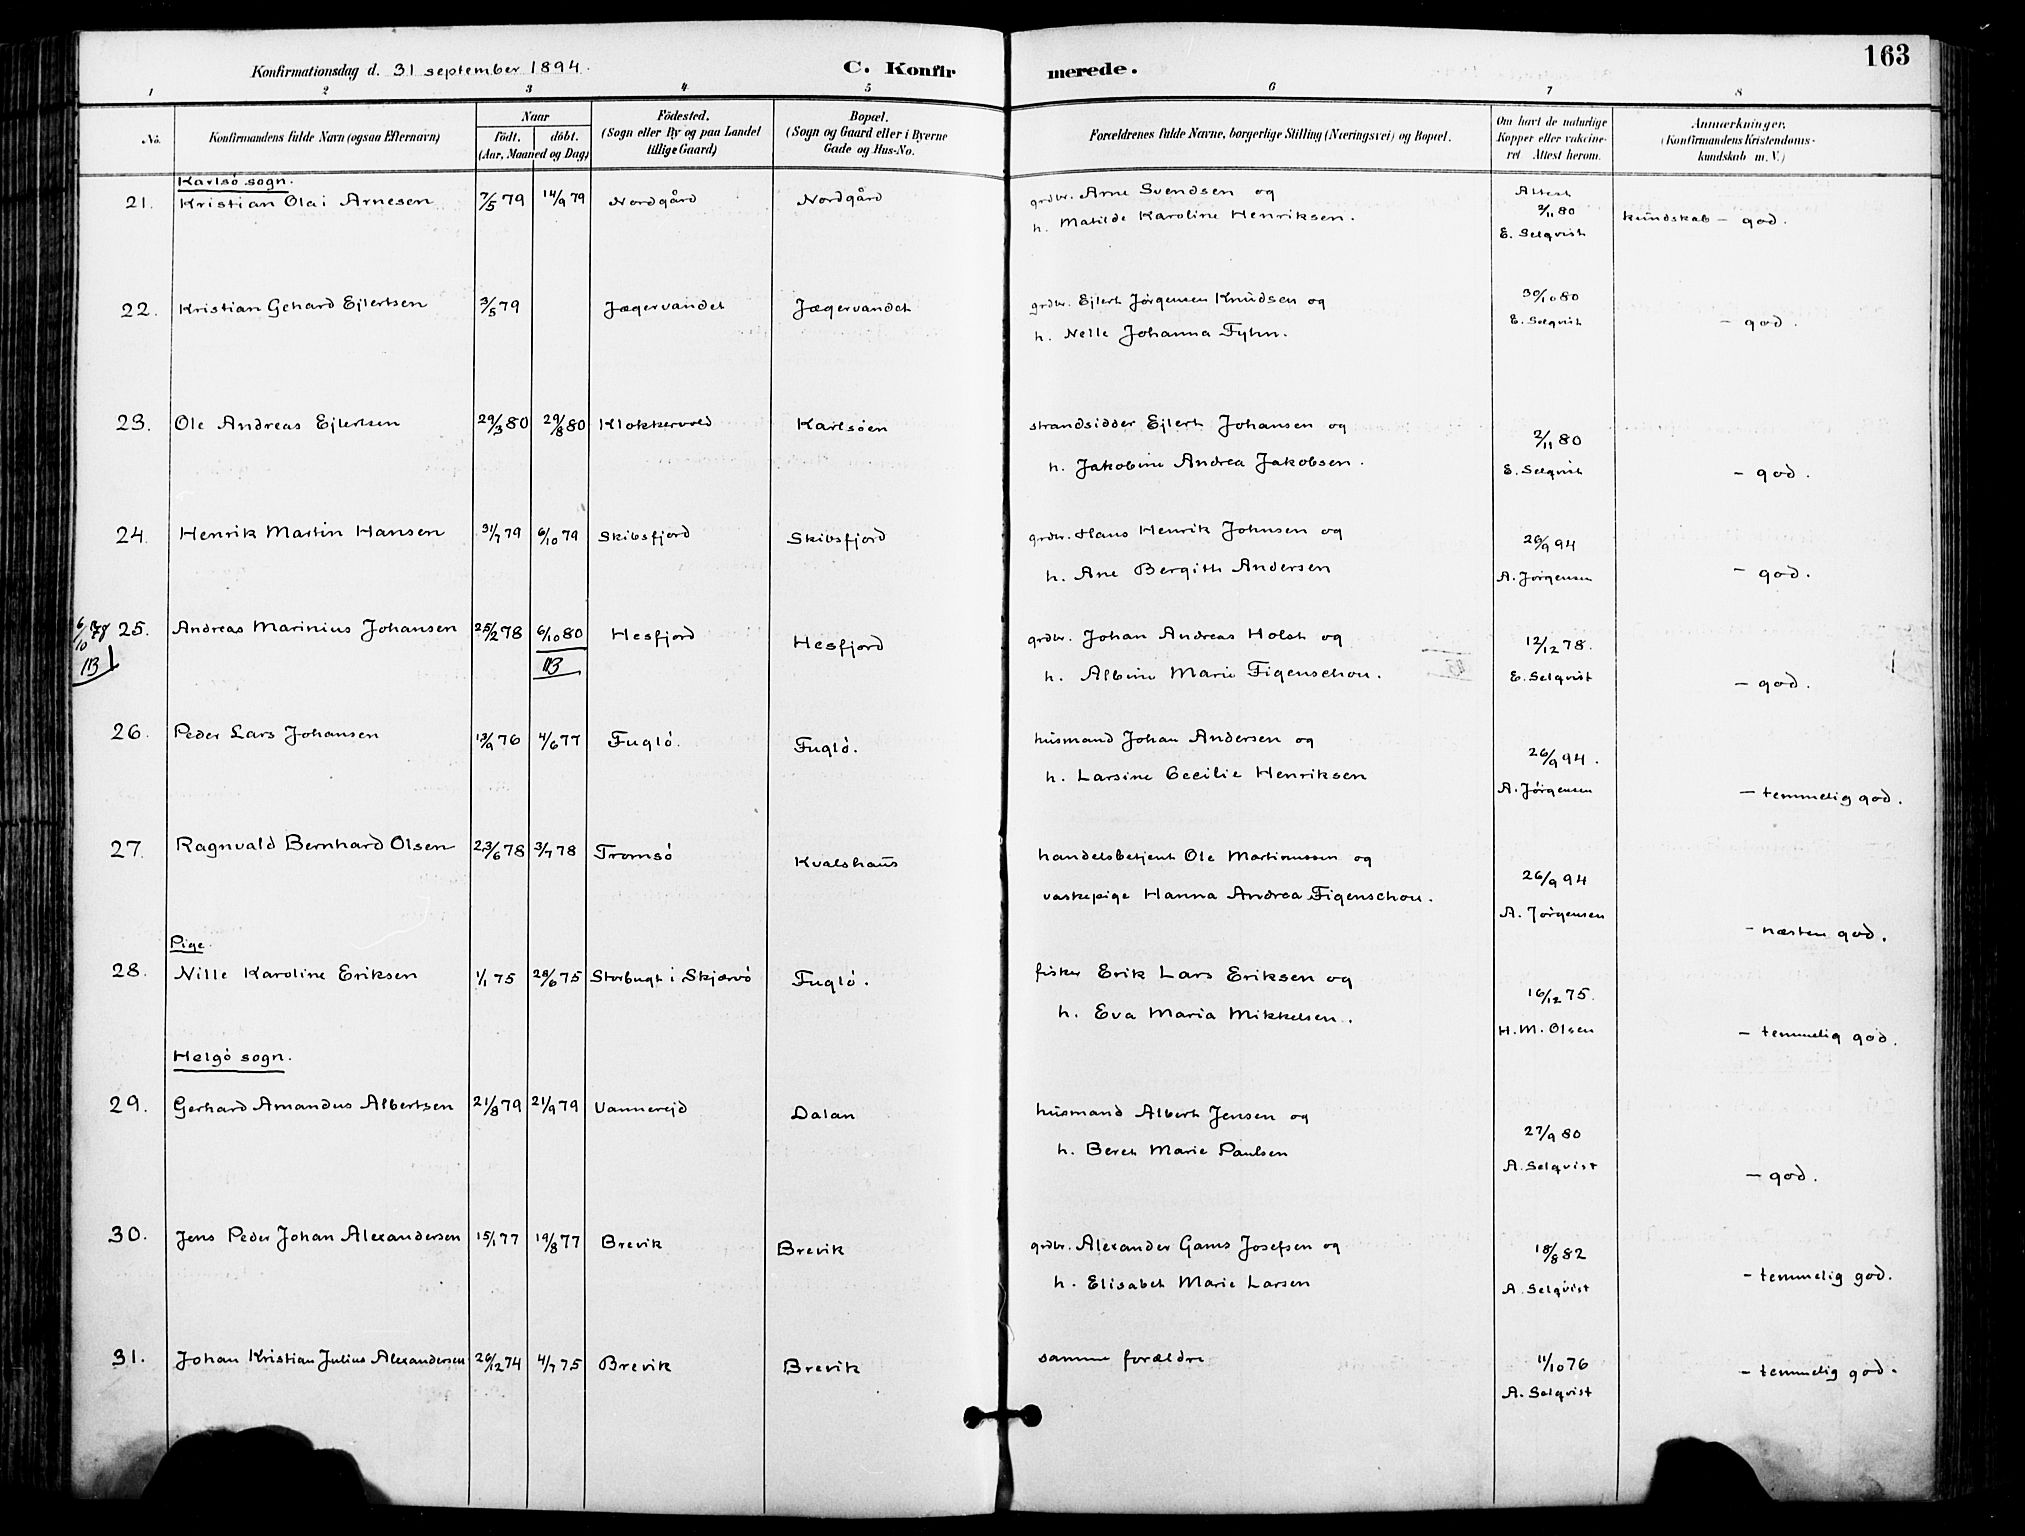 163
Konfirmationsdag d. 31 september 1894. C. Konfirmerede.
1 2 3 4 5 6 7 8
No. Konfirmandens fulde Navn (ogsaa Efternavn) Naar födt. döbt. (Aar, Maaned og Dag) Födested. (Sogn eller By og paa Landet tillige Gaard) Bopæl. (Sogn og Gaard eller i Byerne Gade og Hus-No. Forældrenes fulde Navne, borgerlige Stilling (Næringsvei) og Bopæl. Om havt de naturlige Kopper eller vakcineret. Attest herom. Anmærkninger, (Konfirmandens Kristendomskundskab m. V.)
Karlsö sogn.
21. Kristian Olai Arnesen 7/5 79 14/9 79 Nordgård Nordgård grdbr. Arne Svendsen og Attest 2/11 80
h. Matilde Karoline Henriksen. E. Selqvist kundskab - god.
22. Kristian Gehard Ejlertsen 3/5 79 Jægervandet Jægervandet grdbr. Ejlert Jørgensen Knudsen og 30/10 80
h. Nelle Johanna Fyhn. E. Selqvist - god.
23. Ole Andreas Ejlertsen 29/3 80 29/8 80 Klokkervold Karlsöen strandsidder Ejlert Johansen og 2/11 80
h. Jakobine Andrea Jakobsen. E. Selqvist - god.
24. Henrik Martin Hansen 31/7 79 6/10 79 Skibsfjord Skibsfjord grdbr. Hans Henrik Johnsen og 26/9 94
h. Ane Bergith Andersen A. Jörgensen - god.
6/10 78 25. Andreas Marinius Johansen 25/2 78 6/10 80 Hesfjord Hesfjord grdbr. Johan Andreas Holst og 12/12 78.
113 113 h. Albine Marie Figenschou. E. Selqvist - god.
26. Peder Lars Johansen 13/9 76 4/6 77 Fuglö. Fuglö. husmand Johan Andersen og 26/9 94.
h. Larsine Cecilie Henriksen A. Jörgensen - temmelig god.
27. Ragnvald Bernhard Olsen 23/6 78 3/7 78 Tromsö Kvalshaus handelsbetjent Ole Martinussen og 26/9 94
vaskepige Hanna Andrea Figenschou. A. Jörgensen - næsten god.
Pige.
28. Nille Karoline Eriksen 1/1 75 28/6 75 Storbugt i Skjærvö Fuglö. fisker Erik Lars Eriksen og 16/12 75.
h. Eva Maria Mikkelsen. H. M. Olsen - temmelig god.
Helgö sogn.
29. Gerhard Amandus Albertsen 21/8 79 21/9 79 Vannerejd Dalan husmand Albert Jensen og 27/9 80
h. Beret Marie Paulsen A. Selqvist - god.
30. Jens Peder Johan Alexandersen 15/1 77 19/8 77 Brevik Brevik grdbr. Alexander Gams Josefsen og 18/8 82
h. Elisabet Marie Larsen A. Selqvist - temmelig god.
31. Johan Kristian Julius Alexandersen 26/12 74 4/7 75 Brevik Brevik samme forældre 11/10 76
A. Selqvist - temmelig god.